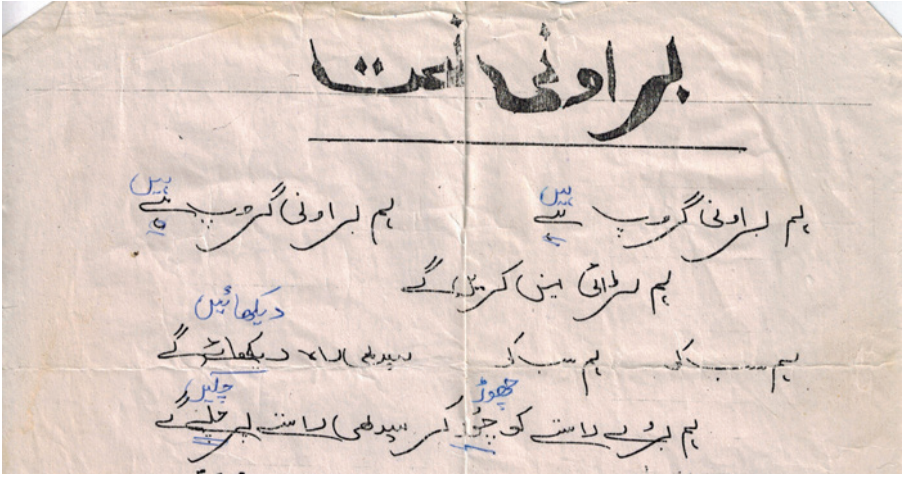 براونی نعت
ہیں ہیں
ہم براونی گروپ ہے ہم براونی گروپ ہے
ہم لڑائی نہیں کریں گے
دیکھائیں
ہم سب کو ہم سب کو سیدھی راہ دیکھائے گے
چھوڑ چلیں
ہم بُرے راستے کو چوڑ کر سیدھی راستے پر چلے گے